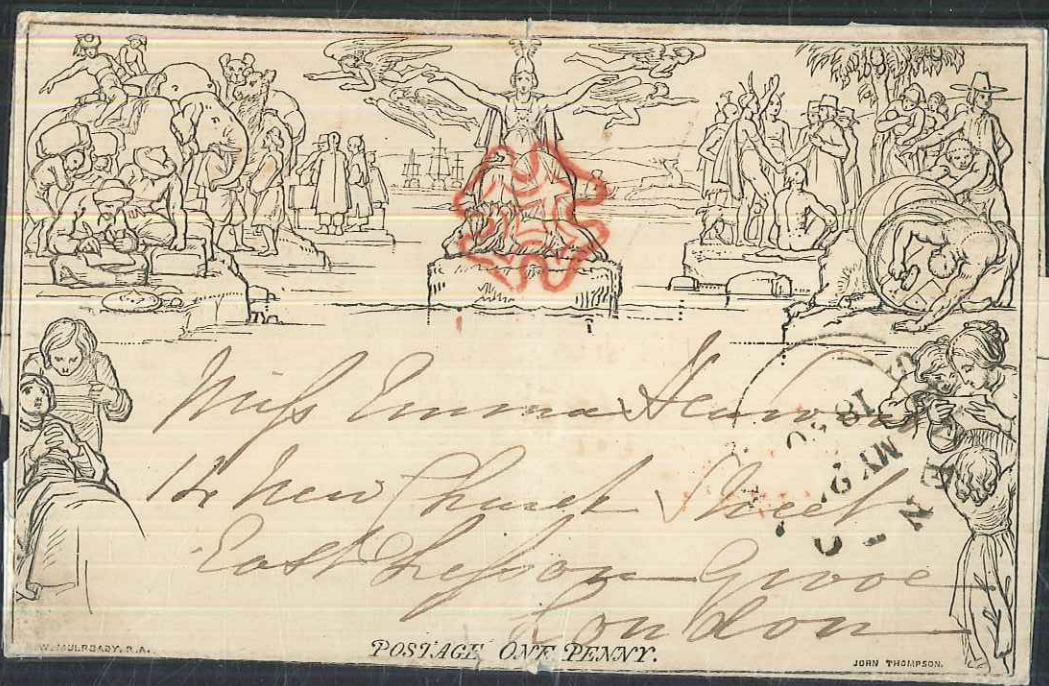 Miss Emma
14 New Church Street
East Lisson Grove
London
MY
W. MULREADY, R.A.
POSTAGE ONE PENNY.
JOHN THOMPSON.